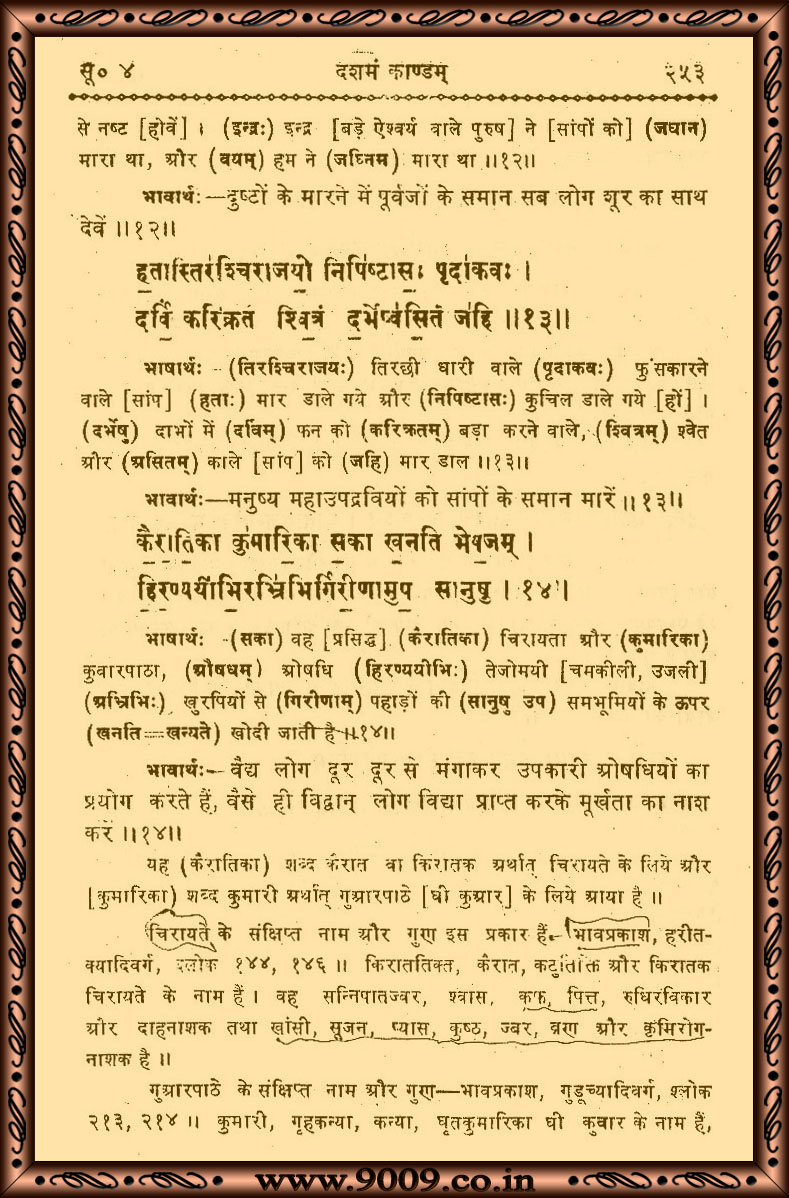 सू० ४ दशमं काण्डम् २५३
से नष्ट [होवें] । (इन्द्रः) इन्द्र [बड़े ऐश्वर्य वाले पुरुष] ने [सांपों को] (जघान)
मारा था, और (वयम्) हम ने (जघ्निम) मारा था ॥१२॥
भावार्थः—दुष्टों के मारने में पूर्वजों के समान सब लोग शूर का साथ
देवें ॥१२॥
ह॒तास्तिर॑श्चिराजयो॒ निपि॑ष्टासः॒ पृदा॑कवः ।
दर्विं॒ करि॑क्रतं श्वि॒त्रं द॒र्भेष्व॑सि॒तं ज॑हि ॥१३॥
भाषार्थः -(तिरश्चिराजयः) तिरछी धारी वाले (पृदाकवः) फुंसकारने
वाले [सांप] (हताः) मार डाले गये और (निपिष्टासः) कुचिल डाले गये [हों] ।
(दर्भेषु) दाभों में (दर्विम्) फन को (करिक्रतम्) बड़ा करने वाले, (श्वित्रम्) श्वेत
और (असितम्) काले [सांप] को (जहि) मार डाल ॥१३॥
भावार्थः—मनुष्य महाउपद्रवियों को सांपों के समान मारें ॥१३॥
कै॒रा॒ति॒का कु॑मारि॒का स॒का ख॑नति भेष॒जम् ।
हि॒र॒ण्ययी॑भि॒रभ्रि॑भिर्गिरी॒णामुप॒ सानु॑षु । १४ ।
भाषार्थः -(सका) वह [प्रसिद्ध] (कैरातिका) चिरायता और (कुमारिका)
कुवारपाठा, (औषधम्) ओषधि (हिरण्ययीभिः) तेजोमयी [चमकीली, उजली]
(अभ्रिभिः) खुरपियों से (गिरीणाम्) पहाड़ों की (सानुषु उप) समभूमियों के ऊपर
(खनति=खन्यते) खोदी जाती है ॥१४॥
भावार्थः—वैद्य लोग दूर दूर से मंगाकर उपकारी ओषधियों का
प्रयोग करते हैं, वैसे ही विद्वान् लोग विद्या प्राप्त करके मूर्खता का नाश
करें ॥१४॥
यह (कैरातिका) शब्द कैरात वा किरातक अर्थात् चिरायते के लिये और
[कुमारिका) शब्द कुमारी अर्थात् गुआरपाठे [घी कुआर] के लिये आया है ॥
चिरायते के संक्षिप्त नाम और गुण इस प्रकार हैं—भावप्रकाश, हरीत-
क्यादिवर्ग, श्लोक १४४, १४६ ॥ किराततिक्त, कैरात, कटुतिक्त और किरातक
चिरायते के नाम हैं । वह सन्निपातज्वर, श्वास, कफ, पित्त, रुधिरविकार
और दाहनाशक तथा खांसी, सूजन, प्यास, कुष्ठ, ज्वर, व्रण और कृमिरोग-
नाशक है ॥
गुआरपाठे के संक्षिप्त नाम और गुण—भावप्रकाश, गुडूच्यादिवर्ग, श्लोक
२१३, २१४ ॥ कुमारी, गृहकन्या, कन्या, घृतकुमारिका घी कुवार के नाम हैं,
www.9009.co.in